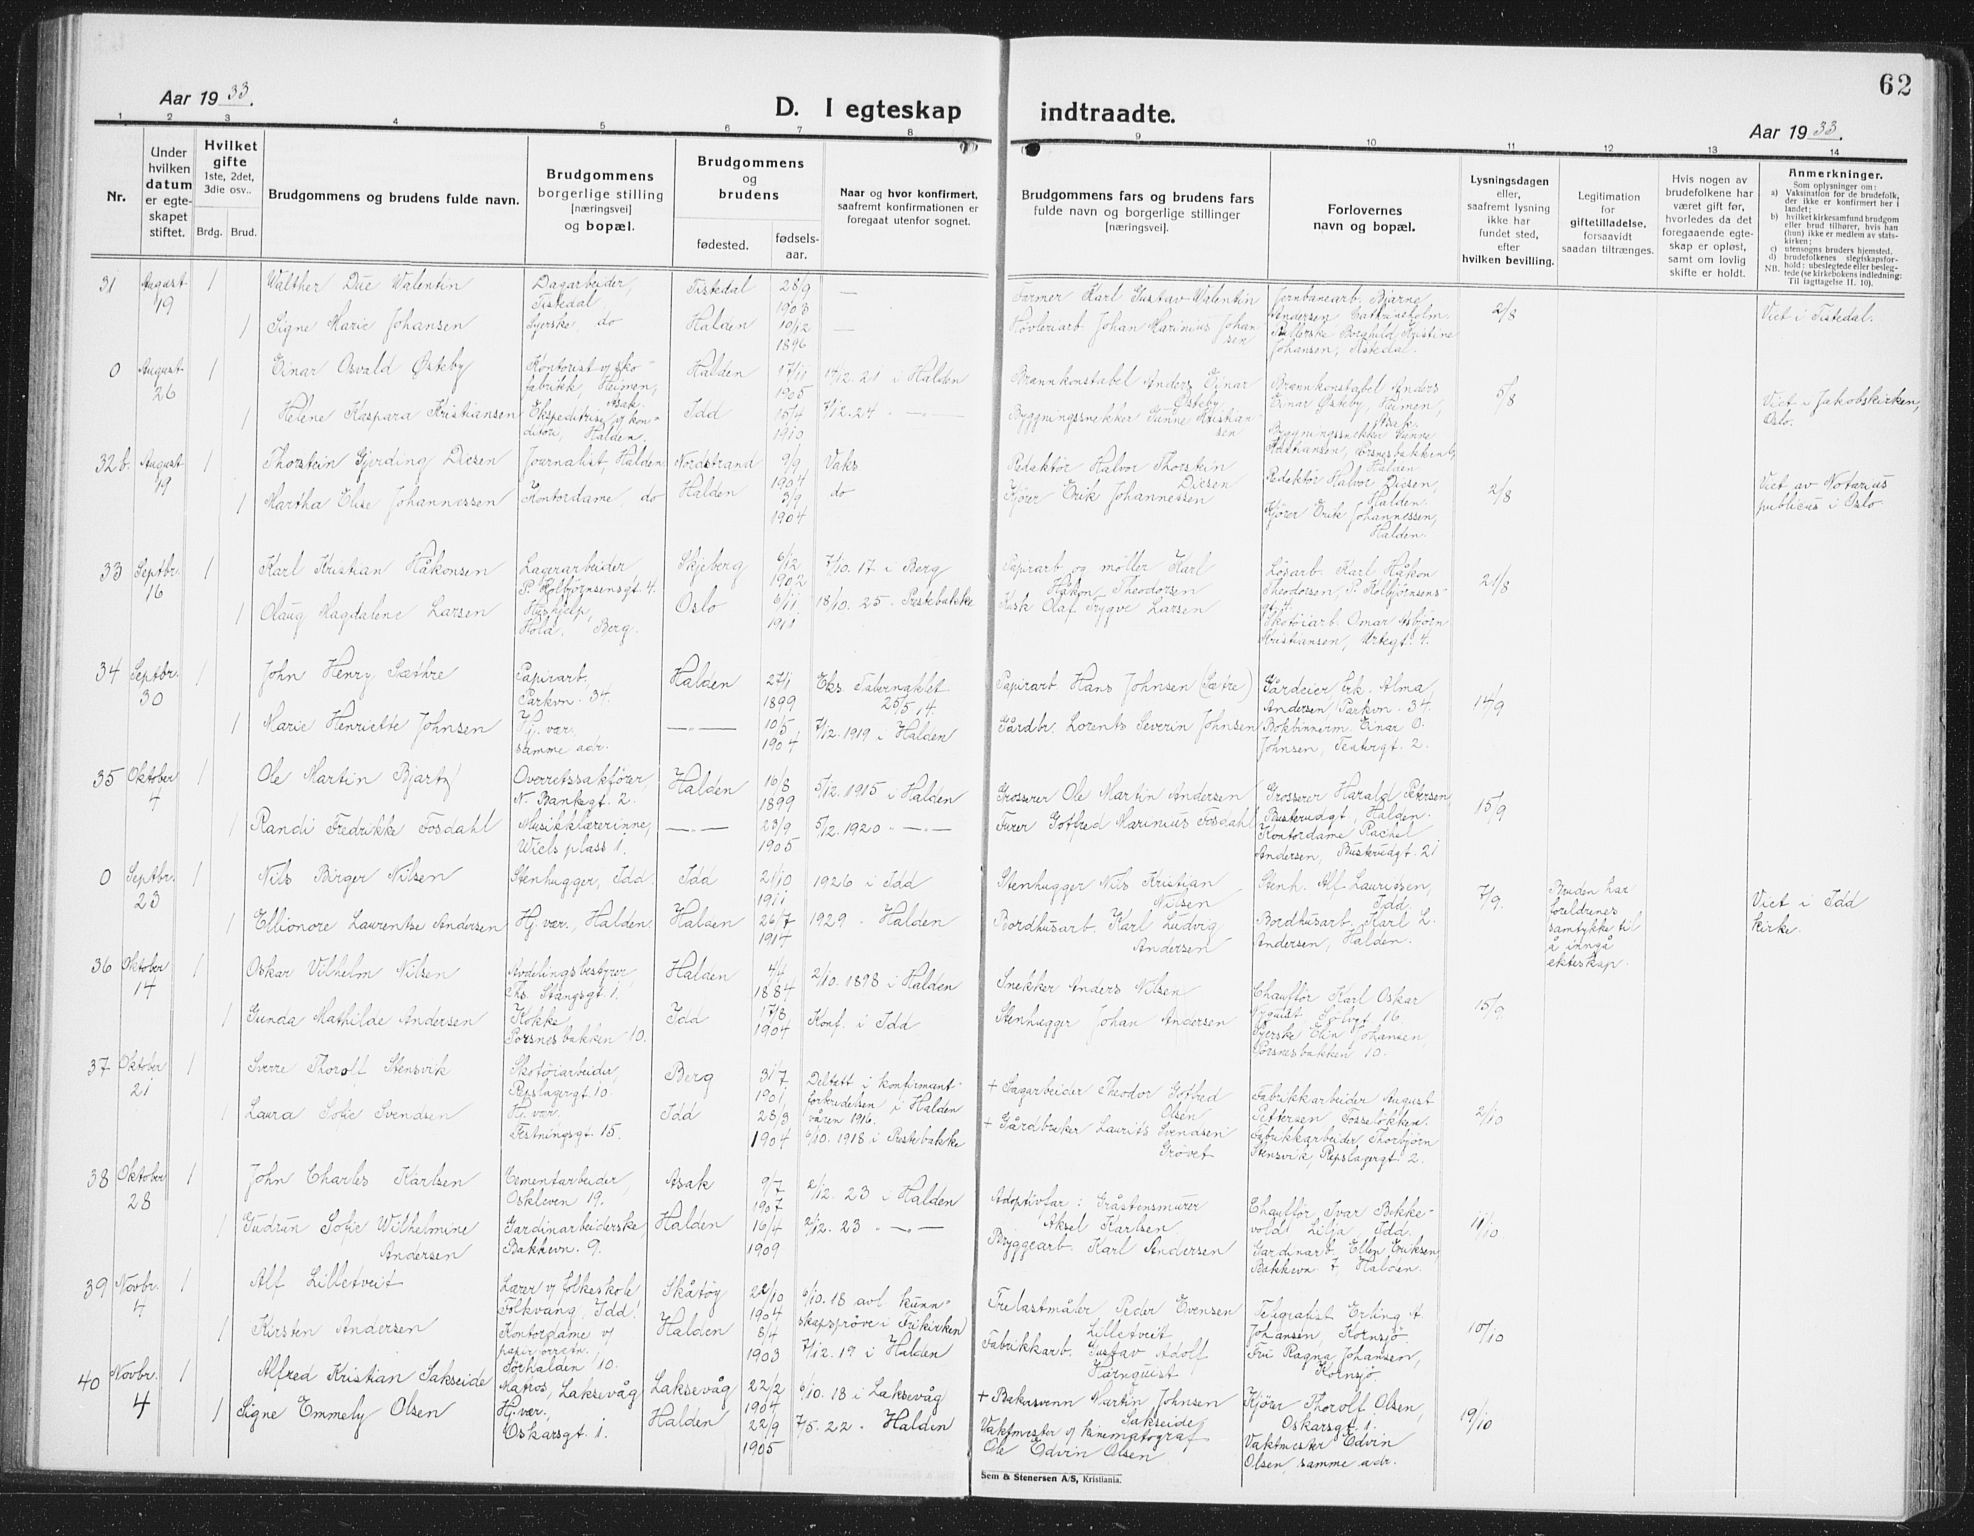 62
Aar 1933.
D. I egteskap indtraadte.
Aar 1933.
1 2 3 4 5 6 7 8 9 10 11 12 13 14
Nr.
Under hvilken datum er egteskapet stiftet.
Hvilket gifte 1ste, 2det, 3die osv..
Brdg. Brud.
Brudgommens og brudens fulde navn.
Brudgommens borgerlige stilling [næringsvei] og bopæl.
Brudgommens og brudens
fødested. fødselsaar.
Naar og hvor konfirmert, saafremt konfirmationen er foregaat utenfor sognet.
Brudgommens fars og brudens fars fulde navn og borgerlige stillinger [næringsvei].
Forlovernes navn og bopæl.
Lysningsdagen eller, saafremt lysning ikke har fundet sted, efter hvilken bevilling.
Legitimation for giftetilladelse, forsaavidt saadan tiltrænges.
Hvis nogen av brudefolkene har været gift før, hvorledes da det foregaaende egteskap er opløst, samt om lovlig skifte er holdt.
Anmerkninger.
Som oplysninger om:
a) Vaksination for de brudefolk, der ikke er konfirmert her i landet;
b) hvilket kirkesamfund brudgom eller brud tilhører, hvis han (hun) ikke er medlem av statskirken;
c) utensogns bruders hjemsted,
d) brudefolkenes slegtskapsforhold: ubeslegtede eller beslegtede (se kirkebokens indledning: Til iagttagelse II. 10).
NB.
31 August 19 1 Walther Due Valentin Dagarbeider, Tistedal Tistedal 28/9 1903 — Farmer Karl Gustav Valentin Jernbanearb. Bjarne Andersen 2/8 Viet i Tistedal.
1 Signe Marie Johansen Syerske do Halden 10/12 1896 — Høvleriarb. Johan Marinius Johansen Borghild Kristine Johansen, Tistedal.
0 August 26 1 Einar Osvald Østeby Kontorist v/ skofabrikk, Heimen, Asak. Halden 17/11 1905 14/12.21 i Halden Brannkonstabel Anders Einar Østeby Brannkonstabel Anders Einar Østeby, Heimen, Asak. 5/8 Viet i Jakobskirken, Oslo.
1 Helene Kaspara Kristiansen Ekspeditrise v/ konditori, Halden. Idd 15/4 1910 7/12.24 —"— Byggningssnekker Gunne Kristiansen Bygningssnekker Gunne Kristiansen, Halden
32b. August 19 1 Thorstein Gjerding Diesen Journalist, Halden Nordstrand 9/9 1904 Vaks Redaktør Halvor Thorstein Diesen Redaktør Halvor Diesen, Halden. 2/8 Viet av Notarius publicus i Oslo.
1 Martha Elise Johannessen Kontordame, do Halden 3/9 1904 do Kjører Erik Johannessen Kjører Erik Johannessen, Halden.
33 Septbr. 16 1 Karl Kristian Håkonsen Lagerarbeider P. Kolbjørnsensgt. 4. Skjeberg 6/12 1902 7/10.17 i Berg Papirarb og møller Karl Håkon Theodorsen Løsarb. Karl Håkon Theodorsen, P. Kolbjørnsensgt. 4. 21/8
1 Olaug Magdalene Larsen Hushjelp, Hola, Berg. Oslo 6/11 1911 18/10.25. Prestebakke Kusk Olaf Trygve Larsen Skotøiarb. Omar Asbjørn Kristiansen, Urtegt. 4.
34 Septbr. 30 1 John Henry Sæthre Papirarb. Parkvn. 34. Halden 27/1 1899 Eks. Tabernaklet 25/5 14 Papirarb. Hans Johnsen (Sætre) Gårdeier frk. Alma Andersen, Parkvn. 34. 14/9
1 Marie Henriette Johnsen Hj. vær. samme adr. —"— 10/5 1904 7/12.1919 i Halden Gårdbr. Lorents Severin Johnsen Bokbinnerm. Einar O. Johnsen, Teatergt. 2.
35 Oktober 4 1 Ole Martin Bjartz Overretssakfører, N. Banksgt. 2. Halden 16/8 1899 5/12.1915 i Halden Grosserer Ole Martin Andersen Grosserer Harald Petersen Busterudgt, Halden. 15/9
1 Randi Fredrikke Fosdahl Musikklærerinne, Wiels plass 1. —"— 23/9 1905 5/12.1920 —"— Furer Gotfred Marinius Fosdahl Kontordame Rachel Andersen, Busterudgt. 21
0 Septbr. 23 1 Nils Birger Nilsen Stenhugger, Idd. Idd 21/10 1911 1926 i Idd Stenhugger Nils Kristian Nilsen Stenh. Alf Lauridsen, Idd. 7/9. Bruden har foreldrenes samtykke til å inngå ekteskap. Viet i Idd kirke.
1 Ellionore Laurentse Andersen Hj. vær., Halden. Halden 26/7 1914 1929 Halden Bordhusarb. Karl Ludvig Andersen Bordhusarb. Karl L. Andersen, Halden.
36 Oktober 14 1 Oskar Vilhelm Nilsen Avdelingsbestyrer, Chs. Stangsgt. 1. Halden 4/4 1884 2/10.1898 i Halden Snekker Anders Nilsen Chauffør Karl Oskar Nyquist Sølvgt 16. 15/9
1 Gunda Mathilde Andersen Kokke Porsnesbakken 10. Idd 17/8 1904 Konf. i Idd Stenhugger Johan Andersen Syerske Elin Johansen, Porsnesbakken 10.
37 Oktober 21 1 Sverre Thorolf Stensvik Skotøiarbeider, Repslagergt. 10. Berg 31/7 1901 Deltatt i konfirmantforberedelsen i Halden våren 1916. + Sagarbeider Theodor Gotfred Olsen Fabrikkarbeider August Pettersen Fosseløkken. 2/10
1 Laura Sofie Svendsen Hj. vær. Festningsgt. 15. Idd 28/3 1904 6/10.1918 i Prestebakke + Gårdbruker Laurits Svendsen Grøvet Fabrikkarbeider Thorbjørn Stensvik, Repslagergt 2.
38 Oktober 28 1 John Charles Karlsen Cementarbeider, Oskleven 19. Asak 9/7 1907 2/12.23 i Halden Adoptivfar: Gråstensmurer Aksel Karlsen Chauffør Ivar Bekkevold Lilja Idd. 11/10
1 Gudrun Sofie Wilhelmine Andersen Gardinarbeiderske, Bakkevn. 9. Halden 16/4 1909 2/12.23 —"— Bryggearb. Karl Andersen Gardinarb. Ellen Eriksen, Bakkevn 7, Halden.
39 Novbr. 4 1 Alf Lilletveit Lærer v/ folkeskole Folkvang, Idd. Skåtøy 22/10 1904 6/10.18 avl. kunnskapsprøve i Frikirken Trelastmåler Peder Evensen Lilletveit Telegrafist Erling A. Johansen, Kornsjø. 10/10
1 Kirsten Andersen Kontordame v/ papirforretn. Sørhalden 10. Halden 8/4 1903 7/12.19 i Halden Fabrikkarb. Gustav Adolf Hårnquist Fru Ragna Johansen, Kornsjø
40 Novbr. 4 1 Alfred Kristian Sakseide Matros, Laksevåg Laksevåg 22/2 1904 6/10.18 i Laksevåg + Bakersvenn Martin Johnsen Sakseide Kjører Thorolf Olsen, Oskarsgt 1. 19/10
1 Signe Emmely Olsen Hj. vær., Oskarsgt 1. Halden 22/9 1905 7/5.22. Halden Vaktmester v/ kinematograf Ole Edvin Olsen Vaktmester Edvin Olsen, samme adr.
Sem & Stenersen A/S, Kristiania.